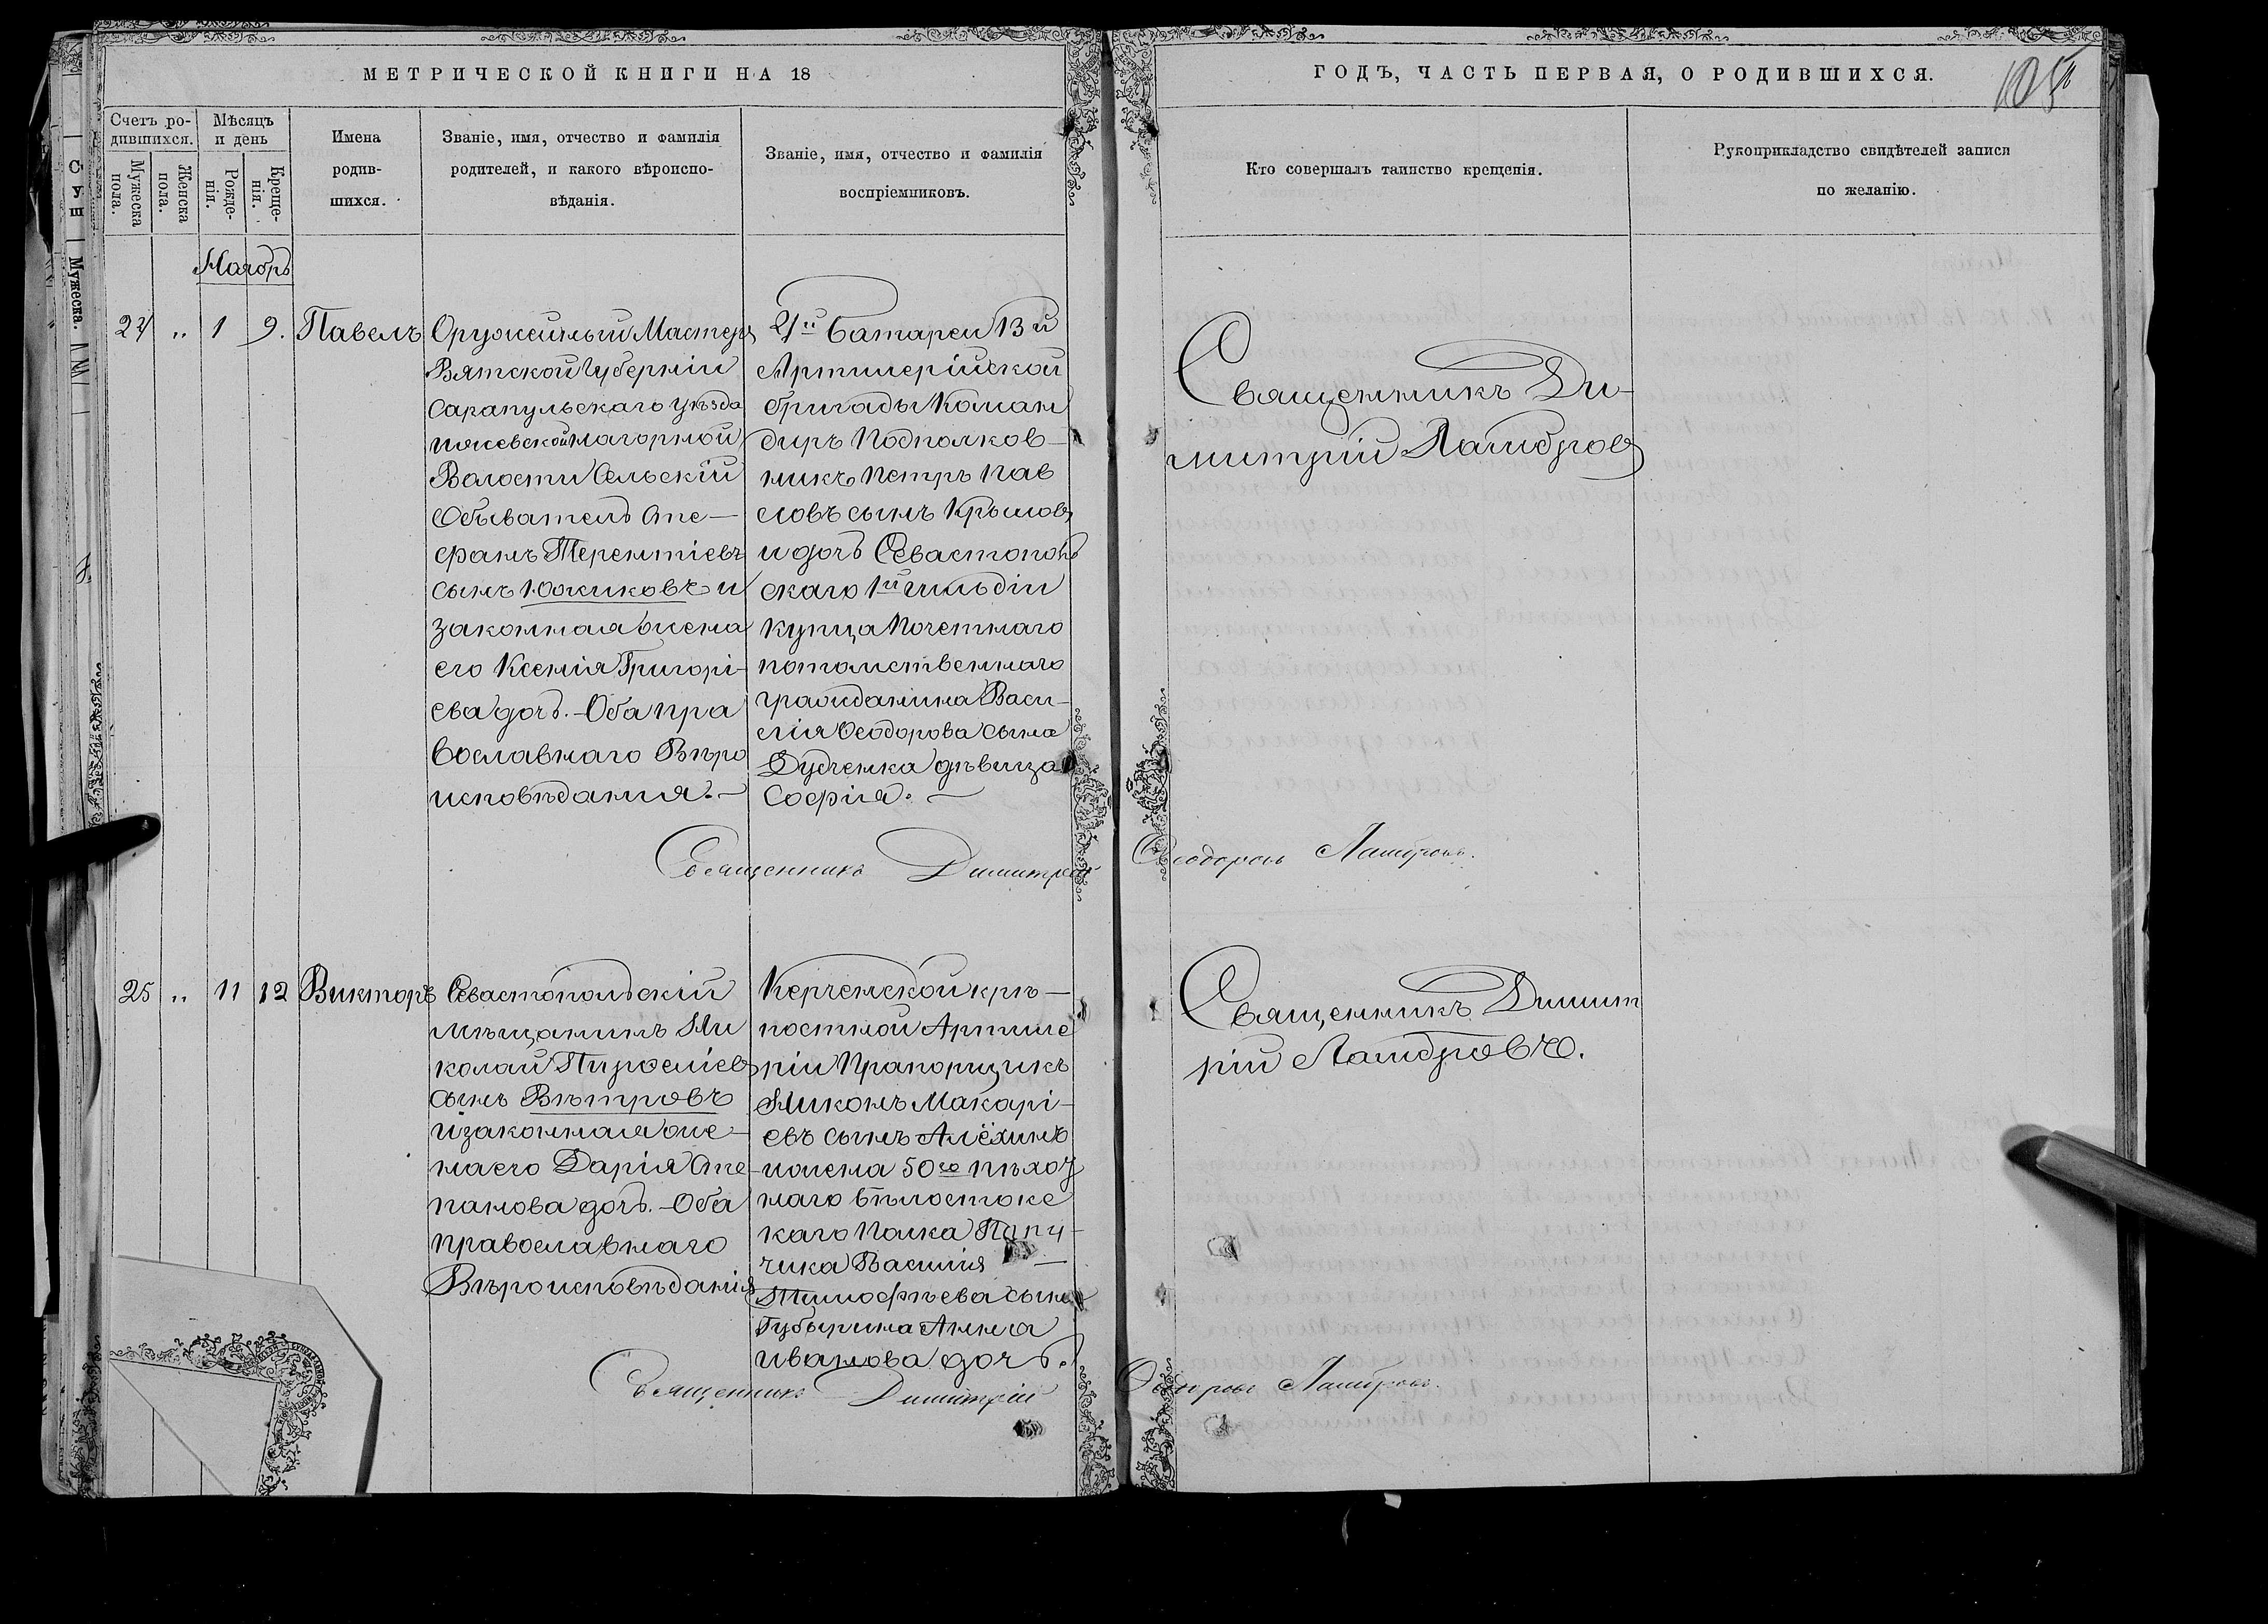 МЕТРИЧЕСКОЙ КНИГИ НА 18
ГОДЪ, ЧАСТЬ ПЕРВАЯ, О РОДИВШИХСЯ.
105
Счетъ ро-
дившихся.
Мужеска
пола.
Женска
пола.
Мѣсяцъ
и день
Рожде-
нія.
Креще-
нія.
Имена
родив-
шихся.
Званіе, имя, отчество и фамилія
родителей, и какого вѣроиспо-
вѣданія.
Званіе, имя, отчество и фамилія
воспріемниковъ.
Кто совершалъ таинство крещенія.
Рукоприкладство свидѣтелей записи
по желанію.
Мужеска.
24 „ 1 9. Павелъ
Оружейный Мастеръ
Вятской Губерніи
Сарапульскаго уѣзда
нагорной
Волости Сельскій
Обыватель Сте-
фанъ Терентіевъ
сынъ Южиковъ и
законная жена
его Ксенія Григорі-
ева дочь. - Оба пра
вославнаго Вѣро
исповѣдания. -
Батареи 13й
Артилерійской
бригады Коман
диръ Подполков-
никъ Петръ Пав
ловъ сынъ Крыловъ
и дочь Севастополь
скаго 1й гильдіи
купца Почетнаго
потомственнаго
гражданина Васи-
лія Ѳеодорова сына
Дубченка дѣвица
Софія. -
Священникъ Ди-
митрій
Священникъ Димитрій
25 „ 11 12 Викторъ
Севастопольскій
мѣщанинъ Ни
колай
сынъ Вѣтровъ
и законная же-
на его Дарія Сте
панова дочь. - Оба
православнаго
Вѣроисповѣданія
Керченской крѣ-
постной Артиле
ріи Прапорщикъ
Никонъ Макарі-
евъ сынъ Алёхинъ
и жена 50го пѣхот
наго Бѣлостокс
каго Полка Пору-
чика Василія -
Тимофѣева сына
Губырина Анна
Иванова дочь.
Священникъ Димит
рій
Священникъ Димитрій